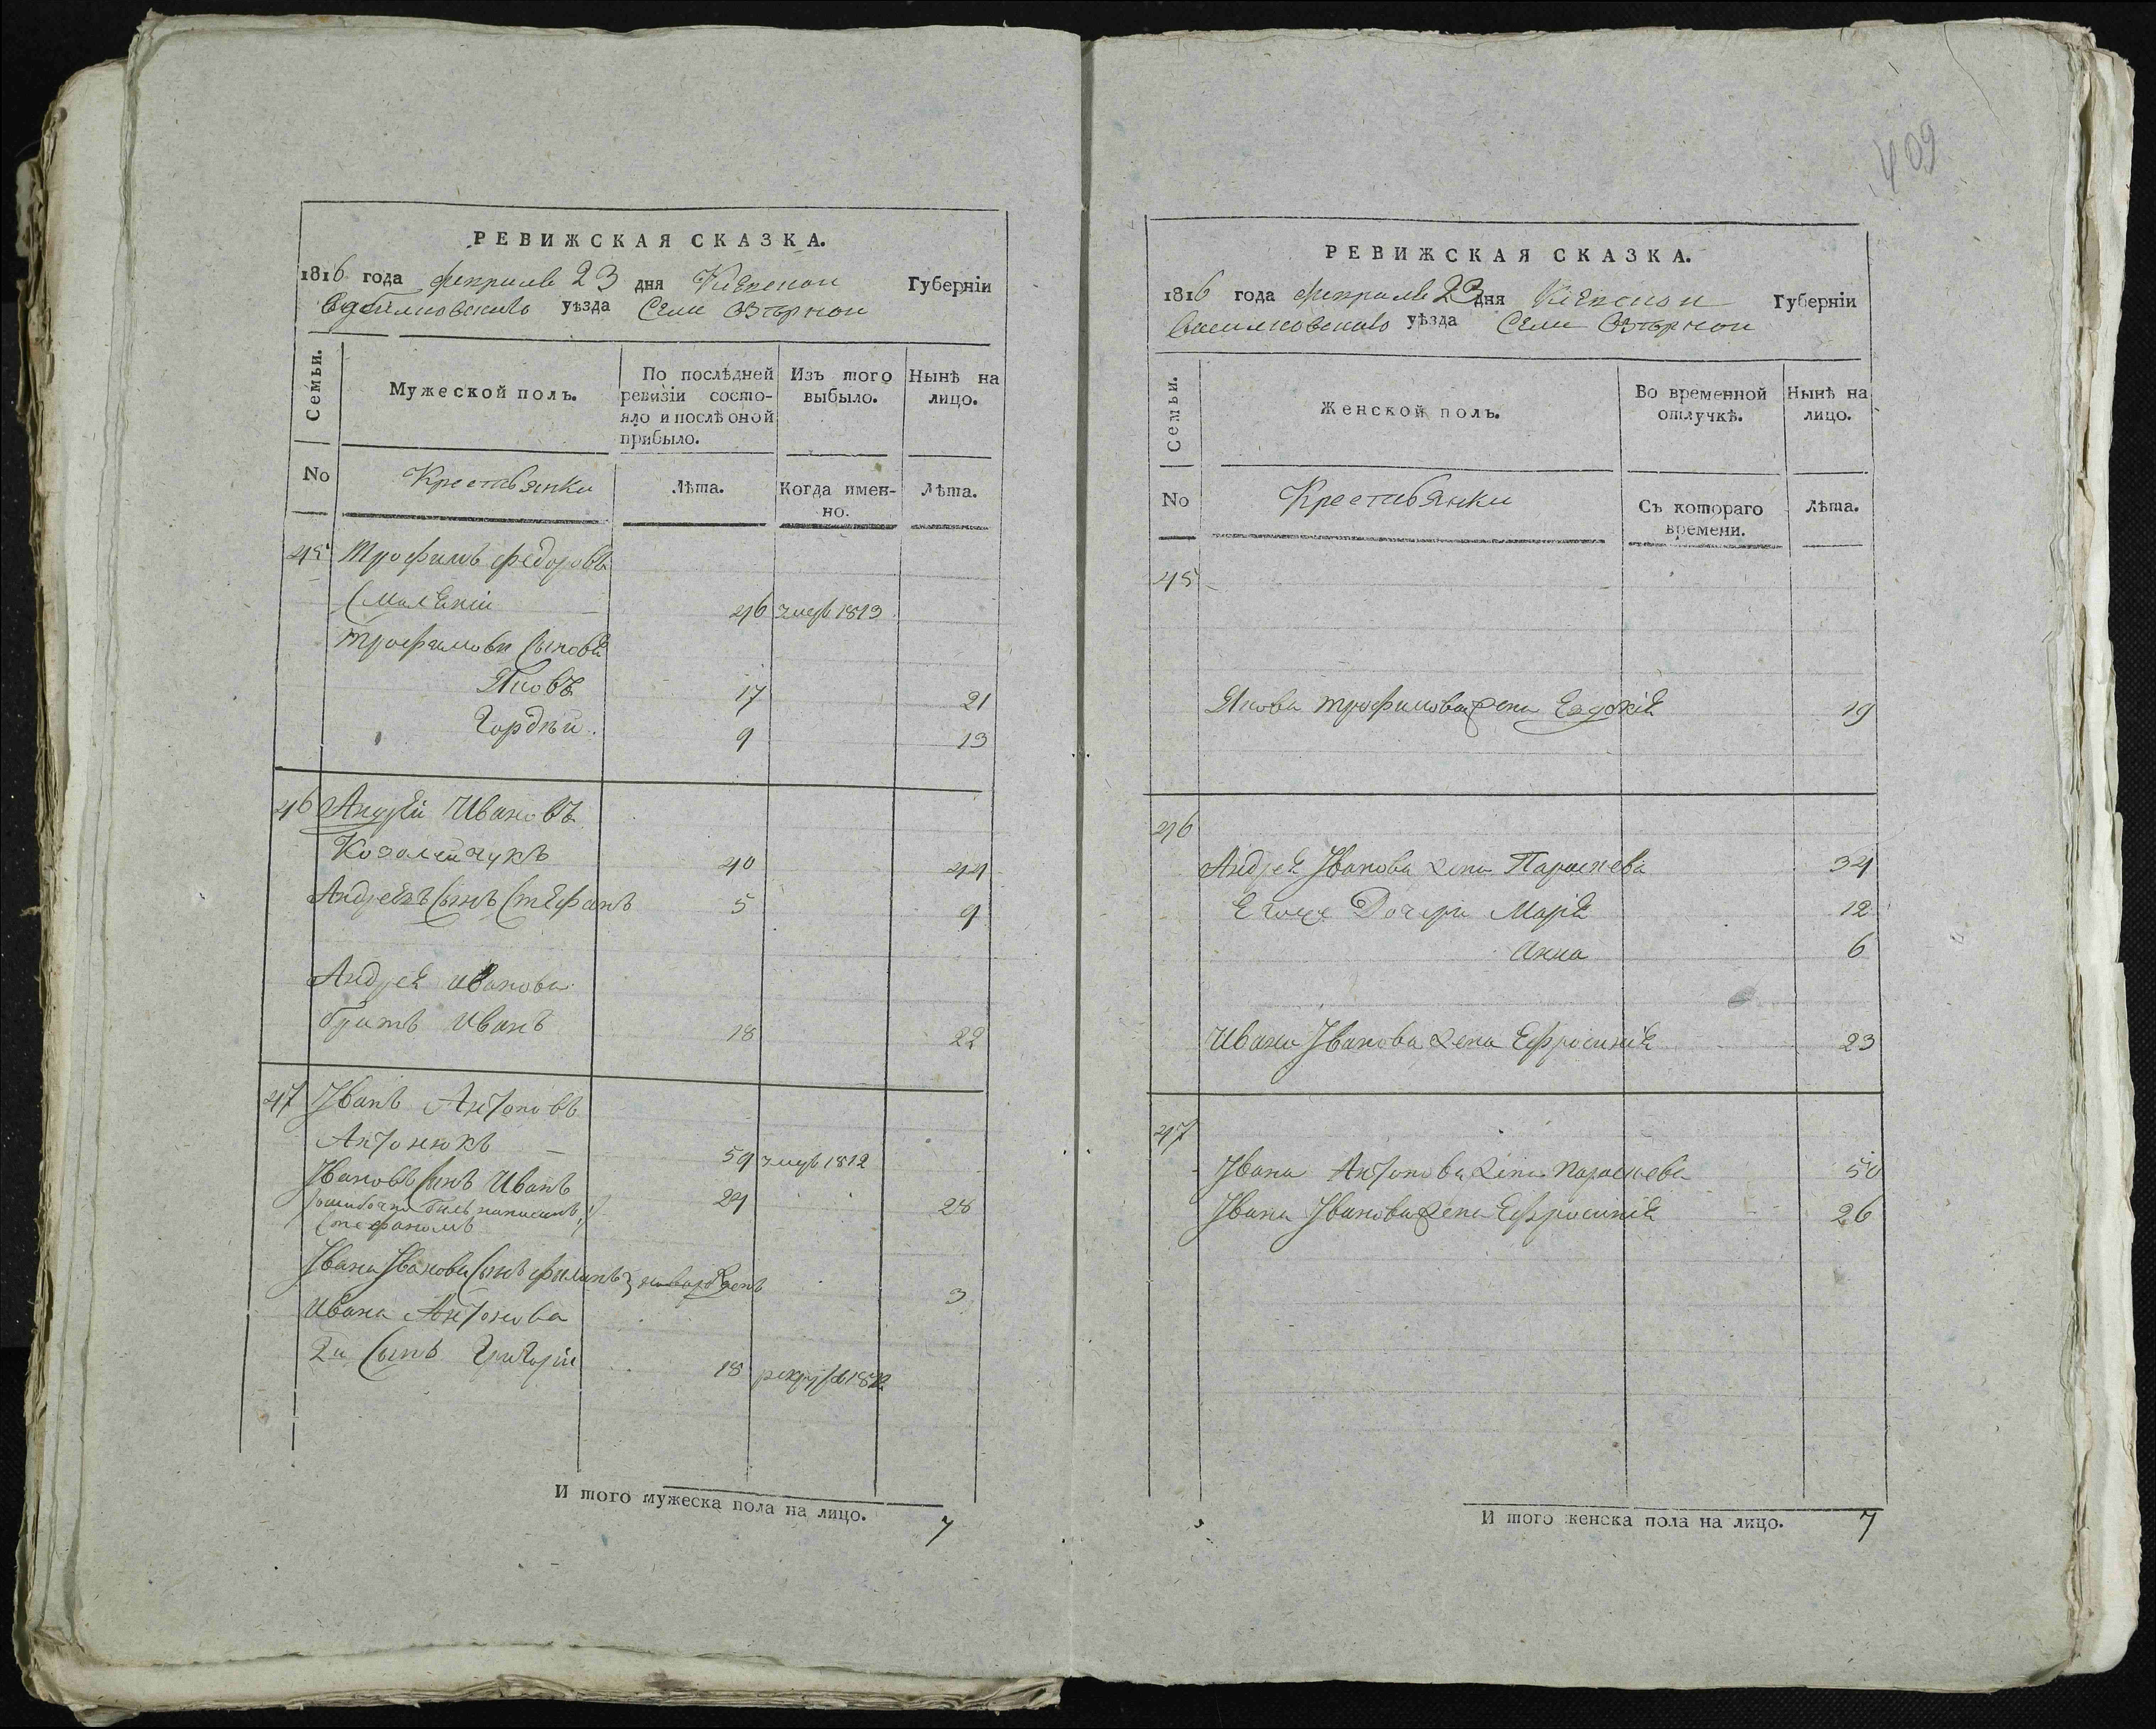 РЕВИЖСКАЯ СКАЗКА.
1816 года февраля 23 дня Кіевской Губерніи
Васильковскаго уѣзда Села Озѣрной
Семьи.
Мужеской полъ.
По послѣдней ревизіи состояло и послѣ оной прибыло.
Изъ того выбыло.
Нынѣ на лицо.
No
Крестьянки
Лѣта.
Когда именно.
Лѣта.
45 Трофимъ Федоровъ
46 умеръ 1813
Трофимовы Сыновья
Яковъ 17 21
Гордѣй. 9 13
46 Андрей Ивановъ
Ковальчукъ 40 44
Андреевъ Сынъ Стефанъ 5 9
Андрея Иванова
братъ Иванъ 18 22
47 Иванъ Антоновъ
Антонюкъ 59 умеръ 1812
Ивановъ Сынъ Иванъ 24 28
ошибочно билъ написанъ
Стефаномъ
Ивана Иванова Сынъ Филипъ новорожденъ 3
Ивана Антонова
2й Сынъ Григорій 18 рекрут 1812
И того мужеска пола на лицо. 7
409
РЕВИЖСКАЯ СКАЗКА.
1816 года февраля 23 дня Кіевской Губерніи
Васильковскаго уѣзда Села Озѣрной
Семьи.
Женской полъ.
Во временной отлучкѣ.
Нынѣ на лицо.
No
Крестьянки
Съ котораго времени.
Лѣта.
45
Якова Трофимова жена Евдокія 19
46
Андрея Иванова жена Параскева 34
Егоже Дочери Марія 12
Анна 6
Ивана Иванова жена Ефросинія 23
47
Ивана Антонова жена Параскева 50
Ивана Иванова жена Ефросинія 26
И того женска пола на лицо. 7